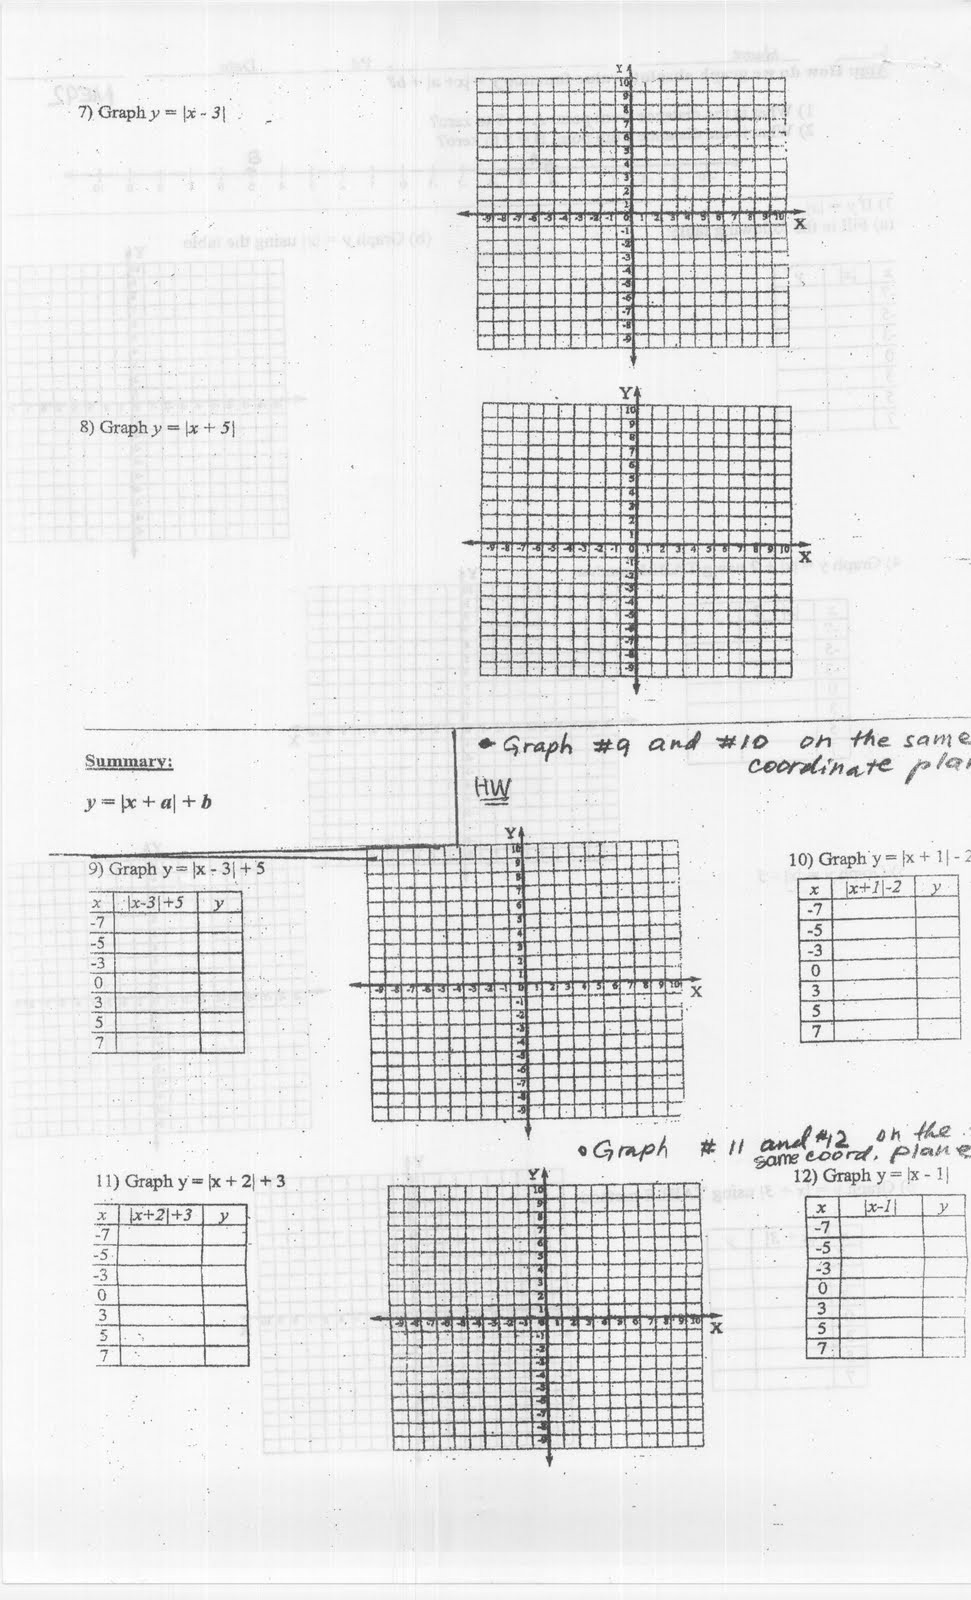 7) Graph y = |x - 3|
Y
10
9
8
7
6
5
4
3
2
1
-9 -8 -7 -6 -5 -4 -3 -2 -1 0 1 2 3 4 5 6 7 8 9 10
X
-1
-2
-3
-4
-5
-6
-7
-8
-9
8) Graph y = |x + 5|
Y
10
9
8
7
6
5
4
3
2
1
-9 -8 -7 -6 -5 -4 -3 -2 -1 0 1 2 3 4 5 6 7 8 9 10
X
-1
-2
-3
-4
-5
-6
-7
-8
-9
• Graph #9 and #10 on the same
coordinate plan
Summary:
HW
y = |x + a| + b
9) Graph y = |x - 3| + 5
x |x-3|+5 y
-7
-5
-3
0
3
5
7
Y
10
9
8
7
6
5
4
3
2
1
-9 -8 -7 -6 -5 -4 -3 -2 -1 0 1 2 3 4 5 6 7 8 9 10
X
-1
-2
-3
-4
-5
-6
-7
-8
-9
10) Graph y = |x + 1| - 2
x |x+1|-2 y
-7
-5
-3
0
3
5
7
• Graph # 11 and #12 on the
same coord. plane
11) Graph y = |x + 2| + 3
x |x+2|+3 y
-7
-5
-3
0
3
5
7
Y
10
9
8
7
6
5
4
3
2
1
-9 -8 -7 -6 -5 -4 -3 -2 -1 0 1 2 3 4 5 6 7 8 9 10
X
-1
-2
-3
-4
-5
-6
-7
-8
-9
12) Graph y = |x - 1|
x |x-1| y
-7
-5
-3
0
3
5
7